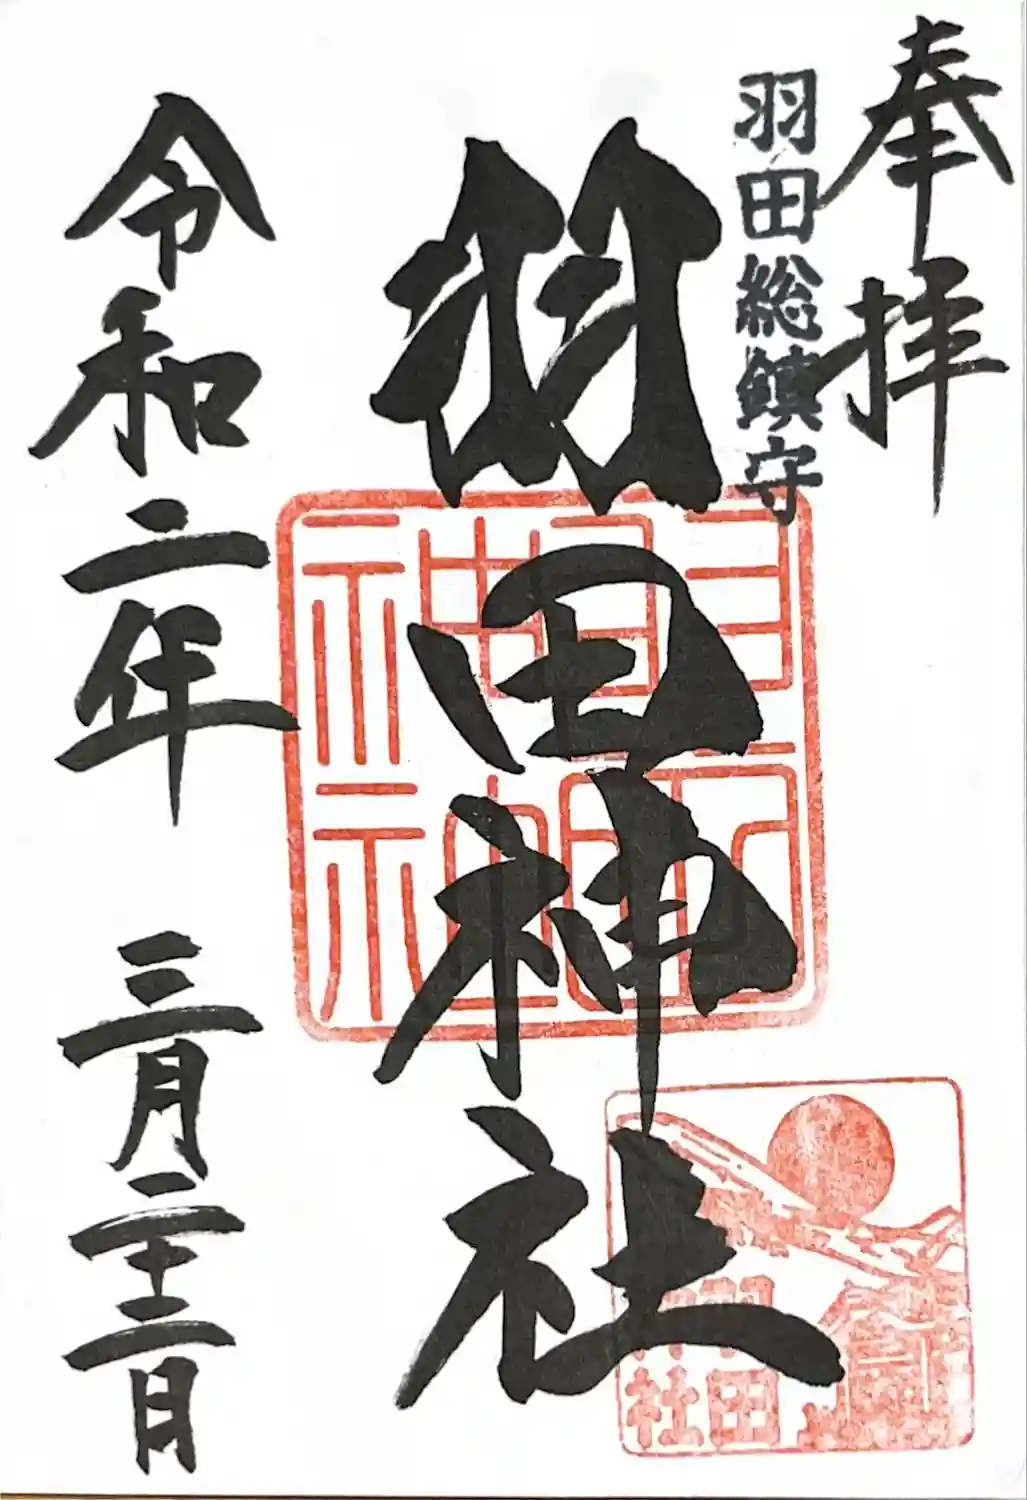 奉拝
羽田総鎮守
羽田神社
令和二年 三月二十二日
羽田神社